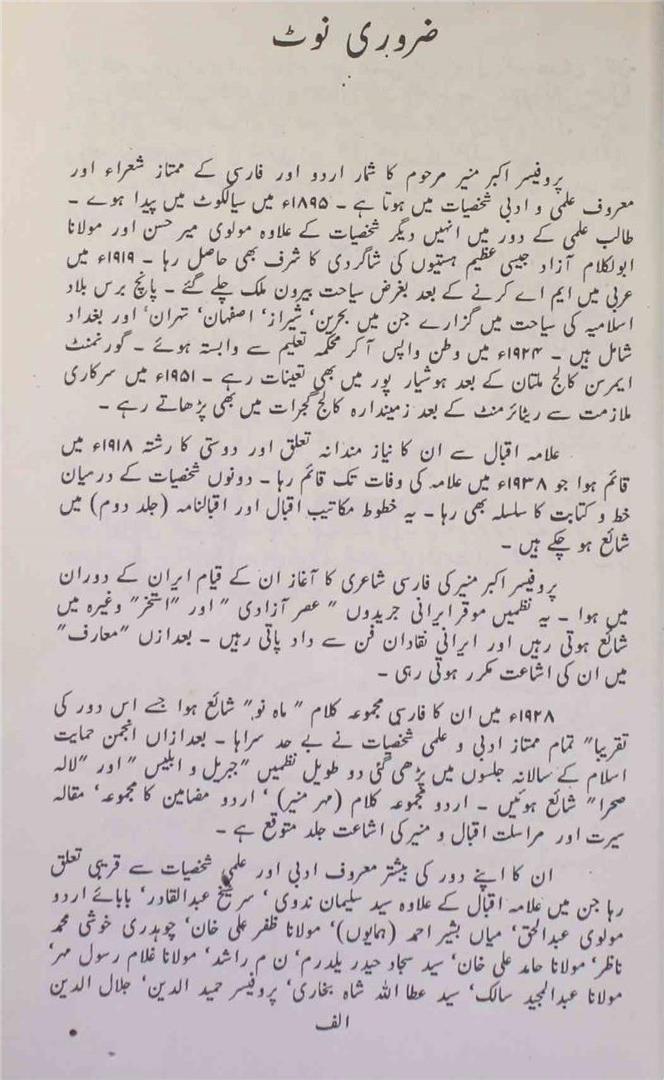 ضروری نوٹ
پروفیسر اکبر منیر مرحوم کا شمار اردو اور فارسی کے ممتاز شعراء اور
معروف علمی و ادبی شخصیات میں ہوتا ہے ۔ ۱۸۹۵ء میں سیالکوٹ میں پیدا ہوے ۔
طالب علمی کے دور میں انہیں دیگر شخصیات کے علاوہ مولوی میر حسن اور مولانا
ابولکلام آزاد جیسی عظیم ہستیوں کی شاگردی کا شرف بھی حاصل رہا ۔ ۱۹۱۹ء میں
عربی میں ایم اے کرنے کے بعد بغرض سیاحت بیرون ملک چلے گئے ۔ پانچ برس بلاد
اسلامیہ کی سیاحت میں گزارے جن میں بحرین‘ شیراز‘ اصفہان‘ تہران‘ اور بغداد
شامل ہیں ۔ ۱۹۲۴ء میں وطن واپس آ کر محکمہ تعلیم سے وابستہ ہوئے ۔ گورنمنٹ
ایمرسن کالج ملتان کے بعد ہوشیار پور میں بھی تعینات رہے ۔ ۱۹۵۱ء میں سرکاری
ملازمت سے ریٹائرمنٹ کے بعد زمیندارہ کالج گجرات میں بھی پڑھاتے رہے ۔
علامہ اقبال سے ان کا نیاز مندانہ تعلق اور دوستی کا رشتہ ۱۹۱۸ء میں
قائم ہوا جو ۱۹۳۸ء میں علامہ کی وفات تک قائم رہا ۔ دونوں شخصیات کے درمیان
خط و کتابت کا سلسلہ بھی رہا ۔ یہ خطوط مکاتیب اقبال اور اقبالنامہ (جلد دوم) میں
شائع ہو چکے ہیں ۔
پروفیسر اکبر منیر کی فارسی شاعری کا آغاز ان کے قیام ایران کے دوران
میں ہوا ۔ یہ نظمیں موقر ایرانی جریدوں ”عصر آزادی“ اور ”استخر“ وغیرہ میں
شائع ہوتی رہیں اور ایرانی نقادان فن سے داد پاتی رہیں ۔ بعدازں ”معارف“
میں ان کی اشاعت مکرر ہوتی رہی ۔
۱۹۲۸ء میں ان کا فارسی مجموعہ کلام ”ماہ نو“ شائع ہوا جسے اس دور کی
تقریبا“ تمام ممتاز ادبی و علمی شخصیات نے بے حد سراہا ۔ بعدازاں انجمن حمایت
اسلام کے سالانہ جلسوں میں پڑھی گئی دو طویل نظمیں ”جبریل و ابلیس“ اور ”لالہ
صحرا“ شائع ہوئیں ۔ اردو مجموعہ کلام (مہر منیر)‘ اردو مضامین کا مجموعہ‘ مقالہ
سیرت اور مراسلت اقبال و منیر کی اشاعت جلد متوقع ہے ۔
ان کا اپنے دور کی بیشتر معروف ادبی اور علمی شخصیات سے قریبی تعلق
رہا جن میں علامہ اقبال کے علاوہ سید سلیمان ندوی‘ سر شیخ عبدالقادر‘ بابائے اردو
مولوی عبدالحق‘ میاں بشیر احمد (ہمایوں)‘ مولانا ظفر علی خان‘ چوہدری خوشی محمد
ناظر‘ مولانا حامد علی خان‘ سید سجاد حیدر یلدرم‘ ن م راشد‘ مولانا غلام رسول مہر‘
مولانا عبدالمجید سالک‘ سید عطا اللہ شاہ بخاری‘ پروفیسر حمید الدین‘ جلال الدین
الف